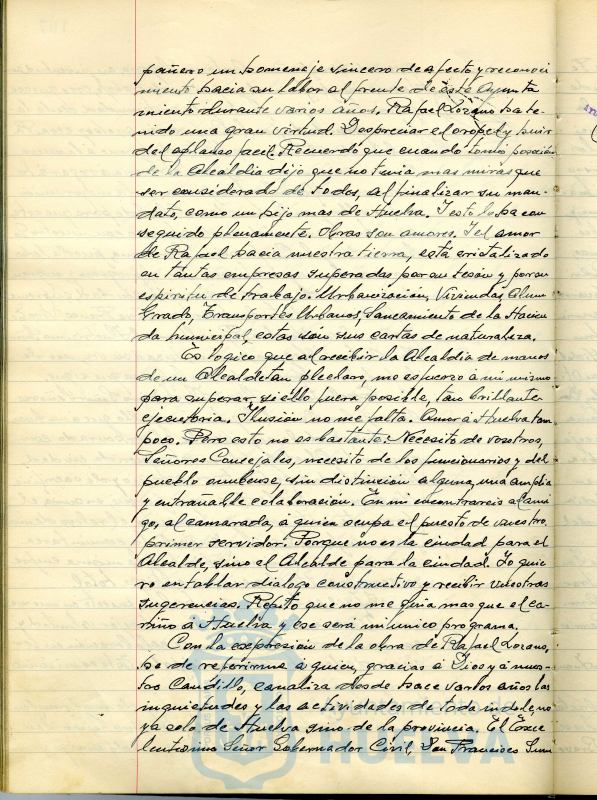 pañero un homenaje sincero de afecto y reconoci
miento hacia su labor al frente de éste Ayunta
miento durante varios años. Rafael Lozano ha te-
nido una gran virtud. Despreciar el oropel y huir
del aplauso facil. Recuerdo que cuando tomó posesión
de la Alcaldia dijo que no tenia mas miras que
ser considerado de todos, al finalizar su man-
dato, como un hijo mas de Huelva. Y esto lo ha con
seguido plenamente. Obras son amores. Y el amor
de Rafael hacia nuestra tierra, está cristalizado
en tantas empresas superadas por su tesón y por su
espiritu de trabajo. Urbanización, Viviendas, Alum
brado, Transportes Urbanos, Saneamiento de la Hacien
da municipal, estas son sus cartas de naturaleza.
Es logico que al recibir la Alcaldia de manos
de un Alcalde tan preclaro, me esfuerzo á mi mismo
para superar, si ello fuera posible, tan brillante
ejecutoria. Ilusión no me falta. Amor á Huelva tam
poco. Pero esto no es bastante. Necesito de vosotros,
Señores Concejales, necesito de los funcionarios y del
pueblo onubense, sin distinción alguna, una amplia
y entrañable colaboración. En mi encontrareis al ami
go, al camarada, á quien ocupa el puesto de vuestro
primer servidor. Porque no es la ciudad para el
Alcalde, sino el Alcalde para la ciudad. Yo quie
ro entablar dialogo constructivo y recibir vuestras
sugerencias. Repito que no me guia mas que el ca-
riño á Huelva y ese será mi unico programa.
Con la expresión de la obra de Rafael Lozano,
he de referirme á quien, gracias á Dios y á nues-
tro Caudillo, canaliza desde hace varios años las
inquietudes y las actividades de toda indole, no
ya solo de Huelva sino de la provincia. El Exce
lentisimo Señor Gobernador Civil, Don Francisco
HUELVA